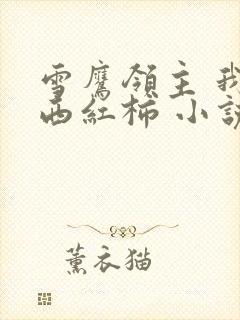 雪鷹領主 我
西紅柿 小說
薰衣猫